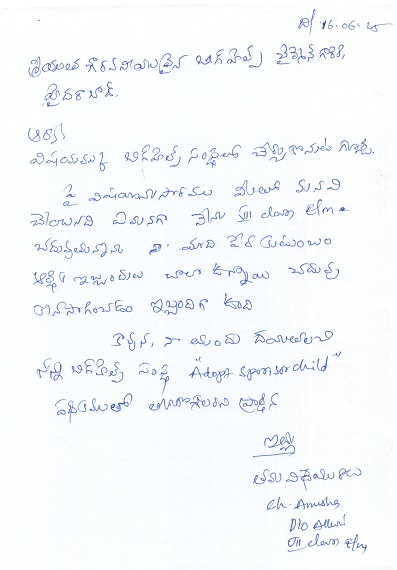 ది/ 16.06.15
శ్రీయుత గౌరవనీయులైన బిగ్‌హెల్ప్ చైర్మెన్ గారికి,
హైదరాబాద్.
ఆర్యా
విషయము బిగ్‌హెల్ప్ సంస్థలో చేర్చు కొనుట గూర్చి.
పై విషయానుసారము మీతో మనవి
చేయునది ఏమనగా నేను VIII class E/m
చదువుతున్నాను మాది పేద కుటుంబం
ఆర్థిక ఇబ్బందులు చాలా ఉన్నాయి చదువు
కొనసాగించడం ఇబ్బందిగా ఉంది
కావున, నా యందు దయతలచి
నన్ను బిగ్‌హెల్ప్ సంస్థ "Adopt sponsor child"
పథకములో ప్రార్థన
ఇట్లు
తమ విధేయురాలు
Ch. Anusha
D/o Alluri
VIII class E/m